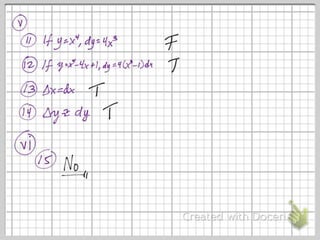 V
11 If y=x⁴, dy=4x³ F
12 If y=x⁴-4x+1, dy=4(x³-1)dx T
13 Δx=dx T
14 Δy≈dy T
vi
15 No
Created with Doceri